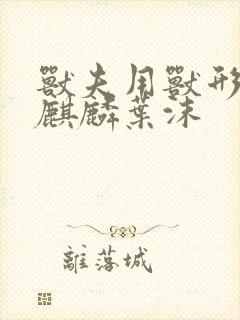 獸夫用獸形
麒麟葉沫
離落城